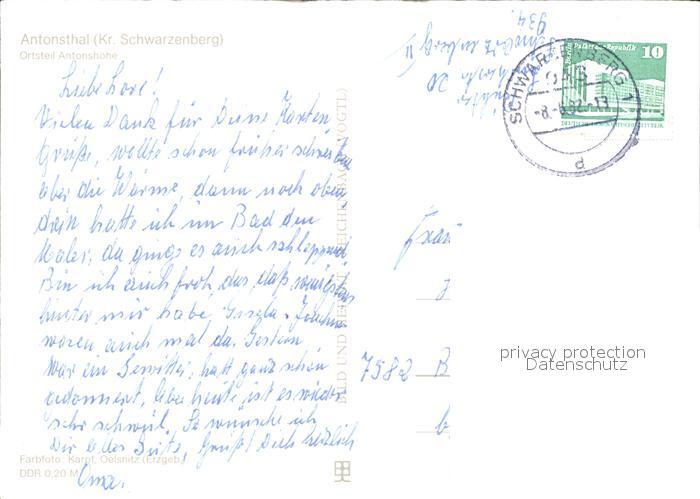 Antonsthal (Kr. Schwarzenberg)
Ortsteil Antonshöhe
Liebe Lore!
Vielen Dank für Deine Karten
Grüße, wollte schon früher schreiben
aber die Wärme, dann noch oben
drein hatte ich im Bad den
Maler, da gings es auch schleppend
Bin ich auch froh, das, daß wenigstens
hinter mir habe, Gisela + Joachim
waren auch mal da. Gestern
war ein Gewitter, hatt ganz schön
gedonnert, aber heute ist es wieder
sehr schwül. So wünsche ich
Dir alles Gute, Grüßt Dich herzlich
Oma.
Farbfoto: Karpf, Oelsnitz (Erzgeb.)
DDR 0,20 M
BILD UND HEIMAT REICHENBACH (VOGTL)
934.
Berlin, Palast der Republik
10
DEUTSCHE DEMOKRATISCHE REPUBLIK
SCHWARZENBERG 1
d
Frau
7582 B
privacy protection
Datenschutz